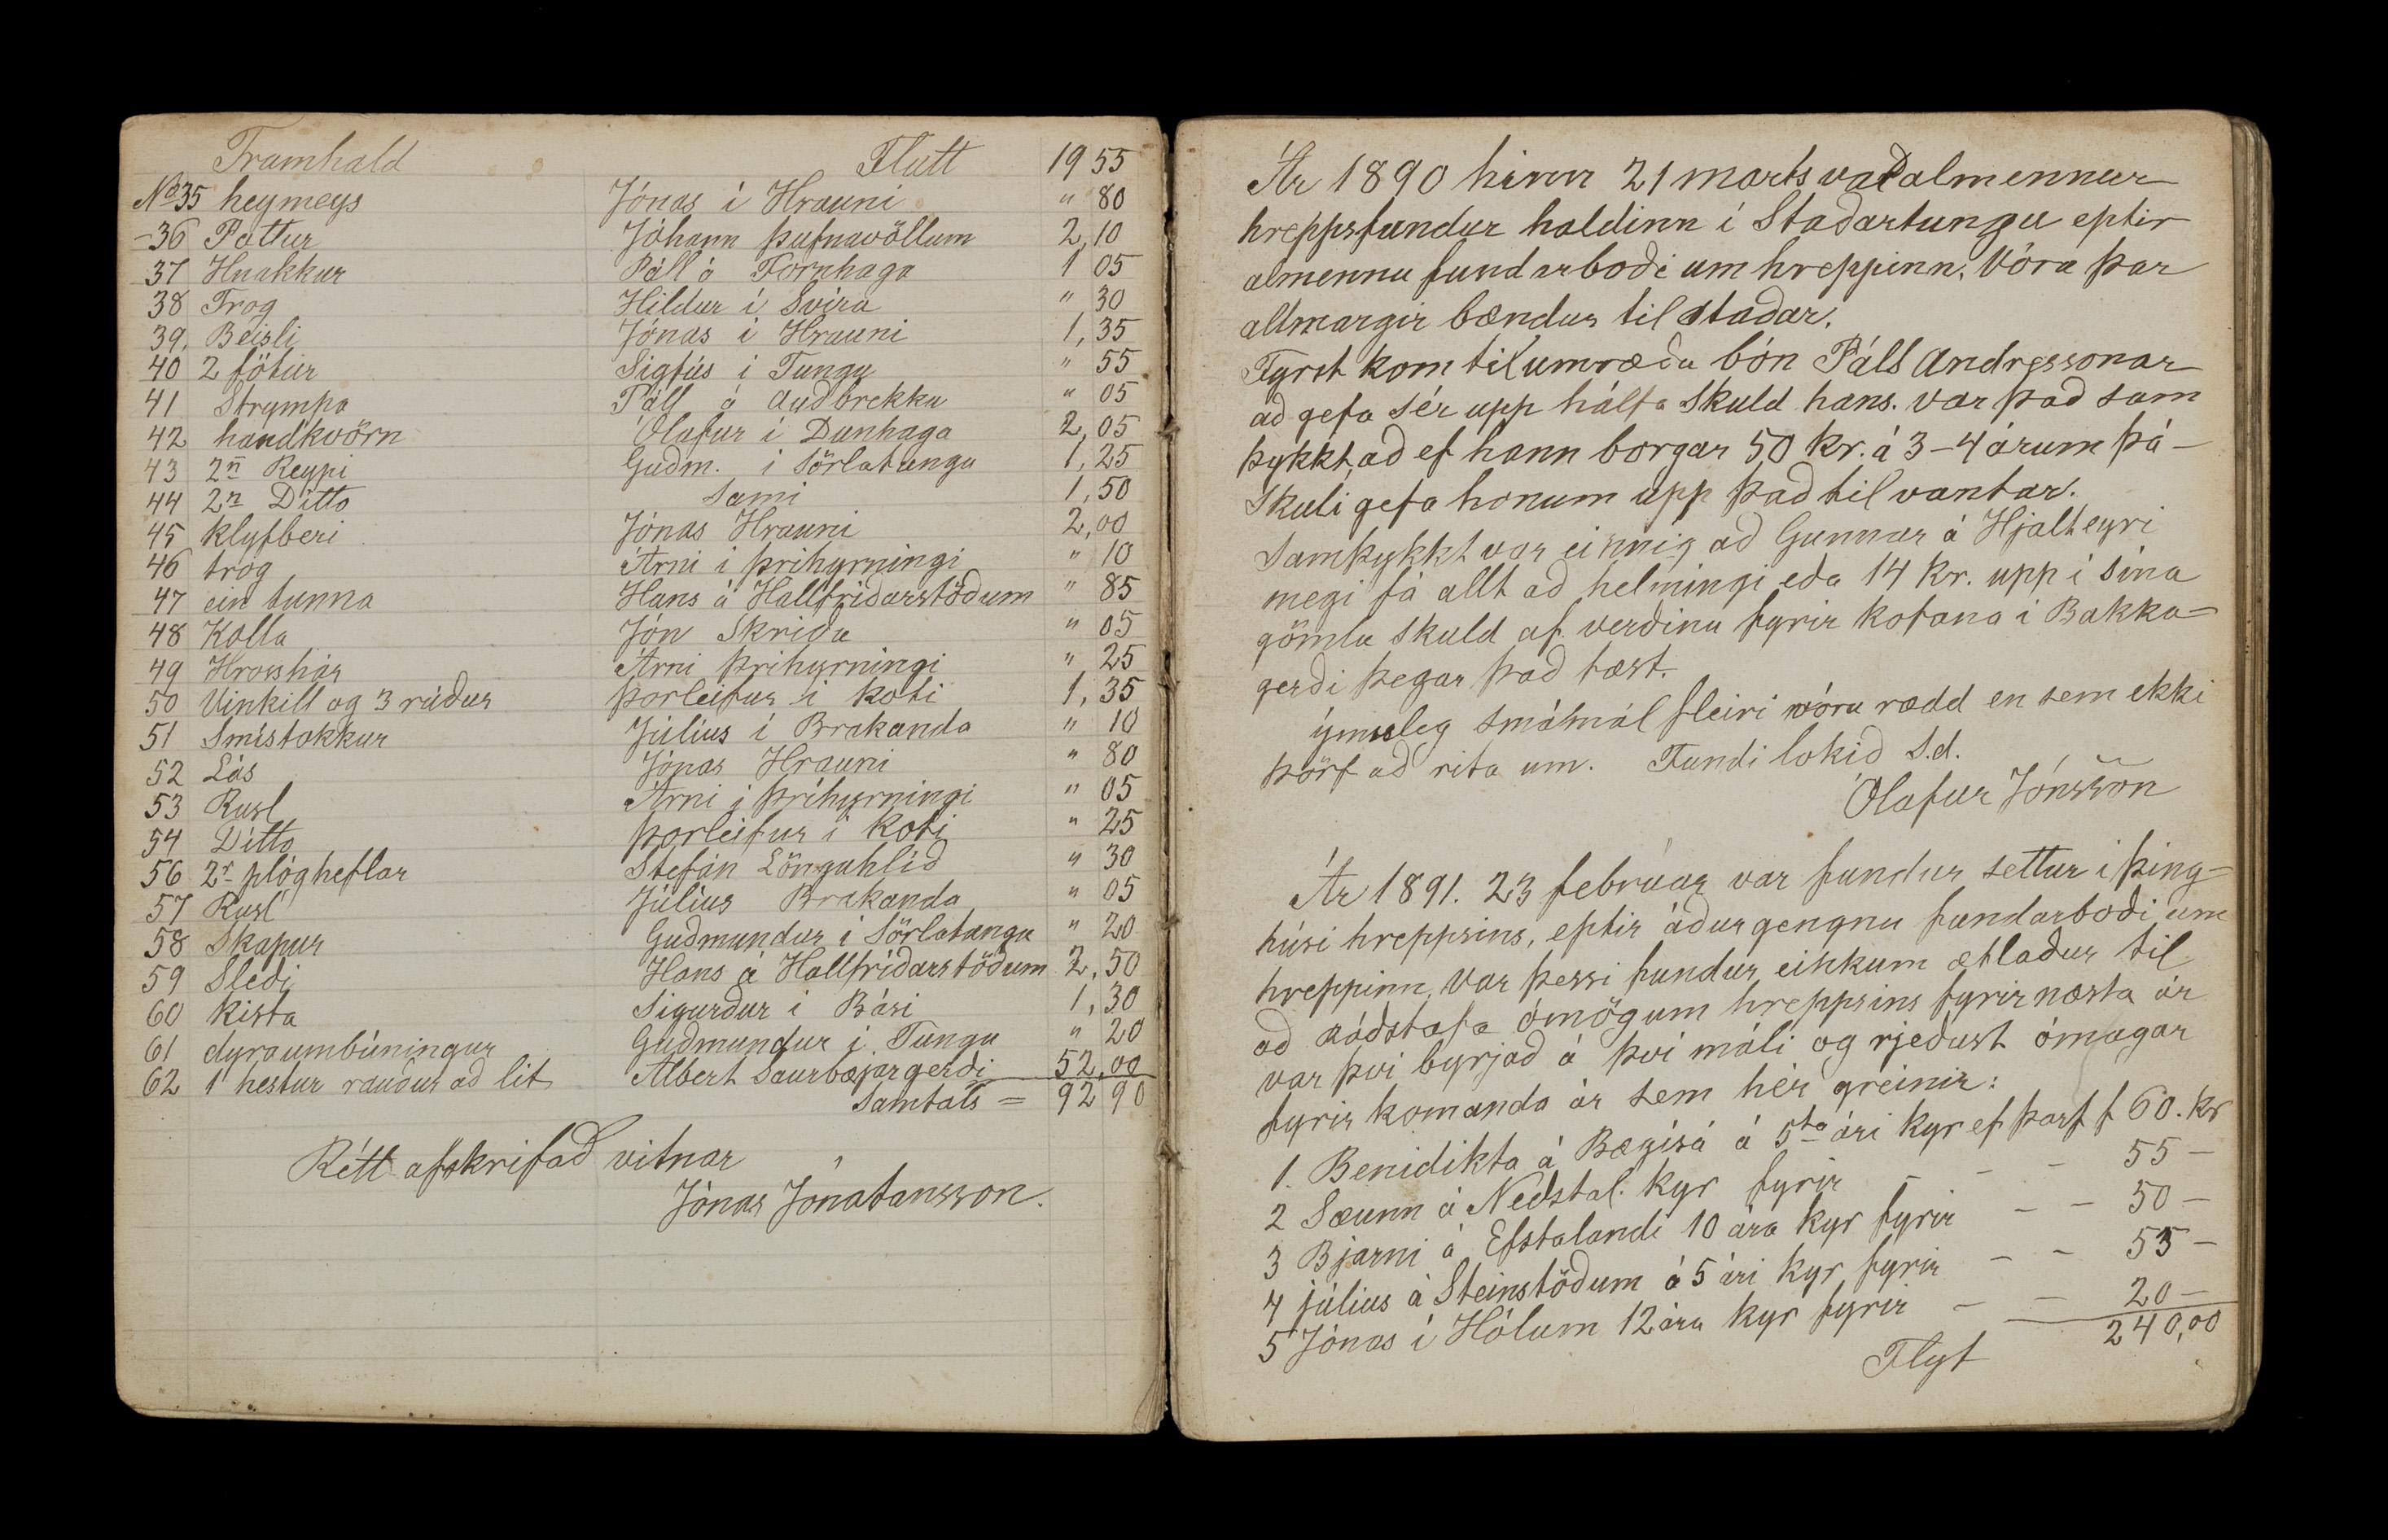 Framhald Flutt 19 55
No 35 heymeys Jónas í Hrauni " 80
- 36 Pottur Jóhann Þufnavöllum 2,10
37 Hnakkur Páll á Fornhaga 1 05
38 Trog Hildur í Svíra " 30
39, Beisli Jónas í Hrauni 1,35
40 2 fötur Sigfús í Tungu " 55
41 Strympa Páll á Auðbrekku " 05
42 handkvörn Ólafur í Dunhaga 2,05
43 2n Reypi Guðm. í Sörlatungu 1,25
44 2n Ditto Sami 1,50
45 klyfberi Jónas Hrauni 2,00
46 trog Árni í Þríhyrningi " 10
47 ein tunna Hans á Hallfríðarstöðum " 85
48 Kolla Jón Skriðu " 05
49 Hrosshár Árni Þríhyrningi " 25
50 Vinkill og 3 rúður Þorleifur í koti 1,35
51 Smístokkur Júlíus í Brakanda " 10
52 Lás Jónas Hrauni " 80
53 Rusl Árni í Þríhyrningi " 05
54 Ditto Þorleifur í Koti " 25
56 2r plógheflar Stefán Lönguhlíð " 30
57 Rusl Júlíus Brakanda " 05
58 Skapur Guðmundur í Sörlatungu " 20
59 Sleði Hans á Hallfríðarstöðum 2,50
60 kista Sigurður í Bási 1,30
61 dyraumbúningur Guðmundur í Tungu " 20
62 1 hestur rauður að lit Albert Saurbæjargerði 52,00
Samtals = 92 90
Rétt afskrifað vitnar
Jónas Jónatansson.
Ár 1890 hinn 21 marts var almennur
hreppsfundur haldinn í Staðartungu eptir
almennu fundarboði um hreppinn. Vóru þar
allmargir bændur til staðar.
Fyrst kom til umræðu bón Páls Andressonar
að gefa sér upp hálfa skuld hans. var það sam
þykkt, að ef hann borgar 50 kr. á 3-4 árum þá -
skuli gefa honum upp það til vantar.
Samþykkt var einnig að Gunnar á Hjalteyri
megi fá allt að helmingi eða 14 kr. upp í sína
gömlu skuld af verðinu fyrir kofana í Bakka=
gerði þegar það fæst.
ýmsleg smámál fleiri vóru rædd en sem ekki
þörf að rita um. Fundi lokið S.d.
Ólafur Jónsson
Ár 1891. 23 februar var fundur settur í þing=
húsi hreppsins, eptir áðurgengnu fundarboði um
hreppinn, var þessi fundur einkum ætlaður til
að ráðstafa ómögum hreppsins fyrir næsta ár
var því byrjað á því máli og rjeðust ómagar
fyrir komanda ár sem hér greinir:
1. Benidikta á Bægisá á 5ta ári kyr ef þarf f 60. kr
2 Sæunn á Neðstal. kyr fyrir - - - 55 -
3 Bjarni á Efstalandi 10 ára kyr fyrir - - 50 -
4 júlíus á Steinstöðum á 5 ári kyr fyrir - - 55 -
5 Jónas í Hólum 12 ára kyr fyrir - - 20 -
Flyt 240,00